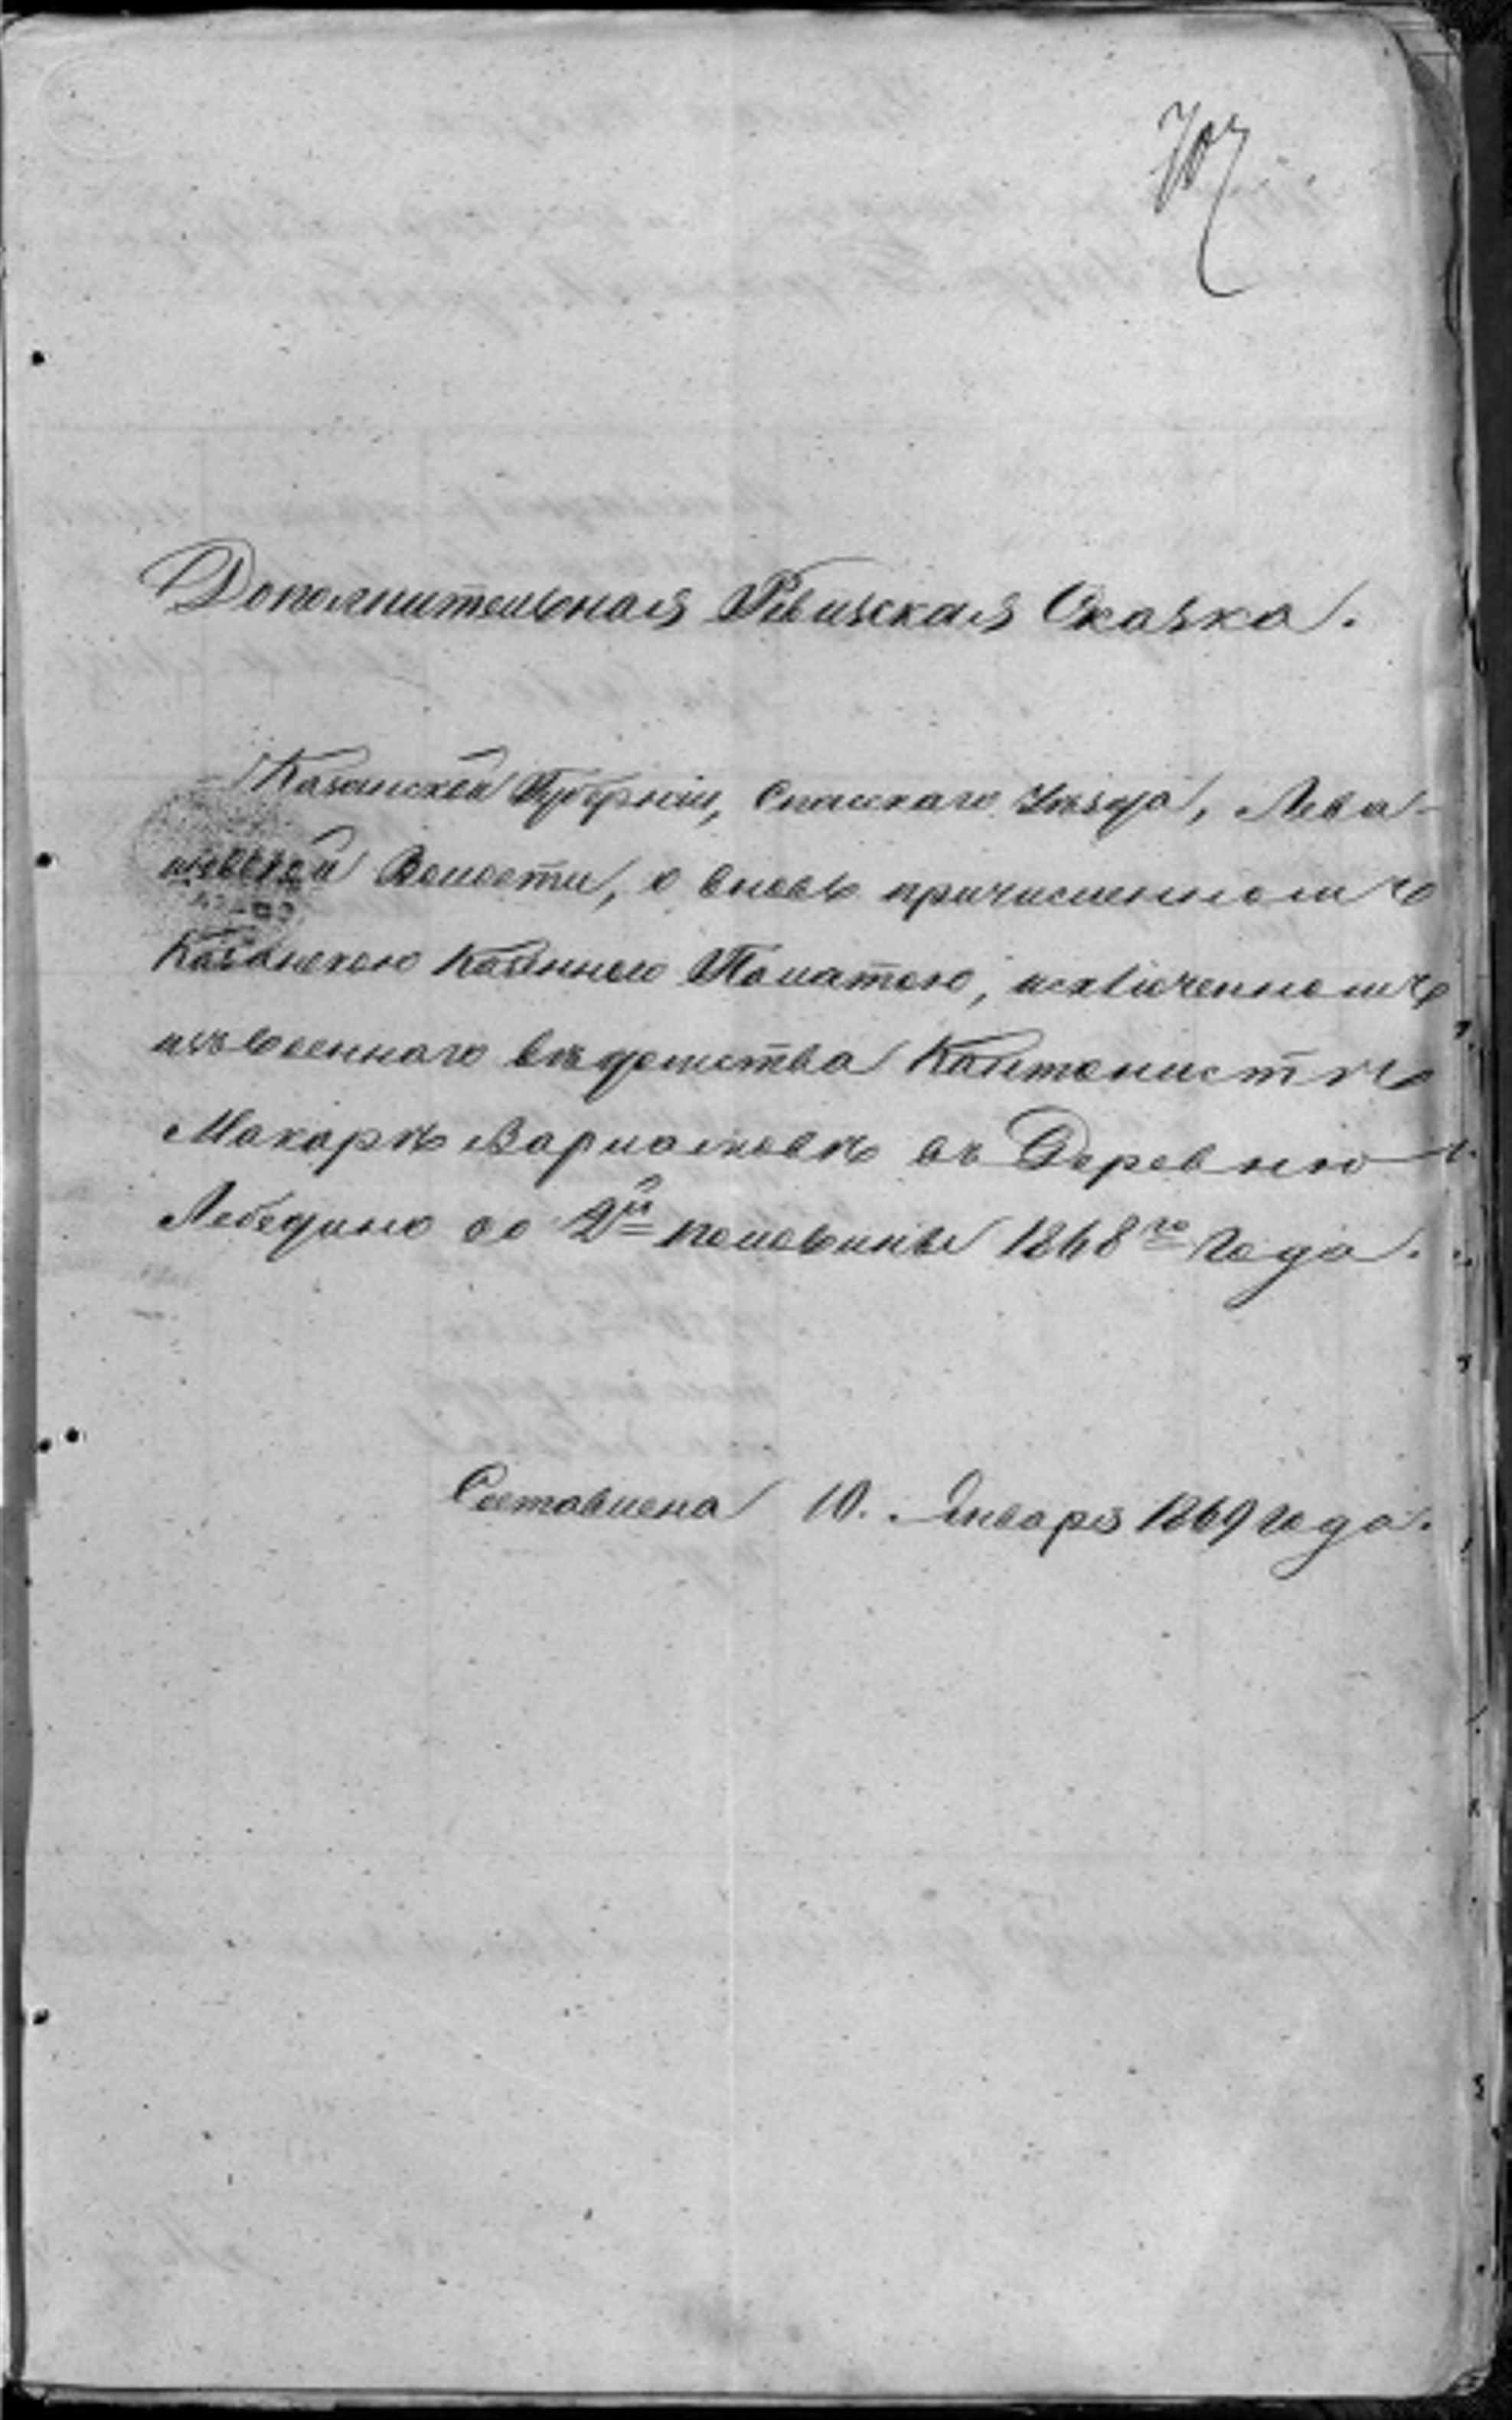 Дополнительная Ревизская Сказка.
Казанской Губернiи, Спасскаго Уѣзда, Лева-
шевской Волости, о вновь причисленномъ
Казанскою Казенною Палатою, исключенномъ
изъ военнаго вѣдомства Кантонистѣ
Макарѣ Варламовѣ въ Деревню
Лебедино со 2й половины 1868го года.
Составлена 10. Января 1869 года.